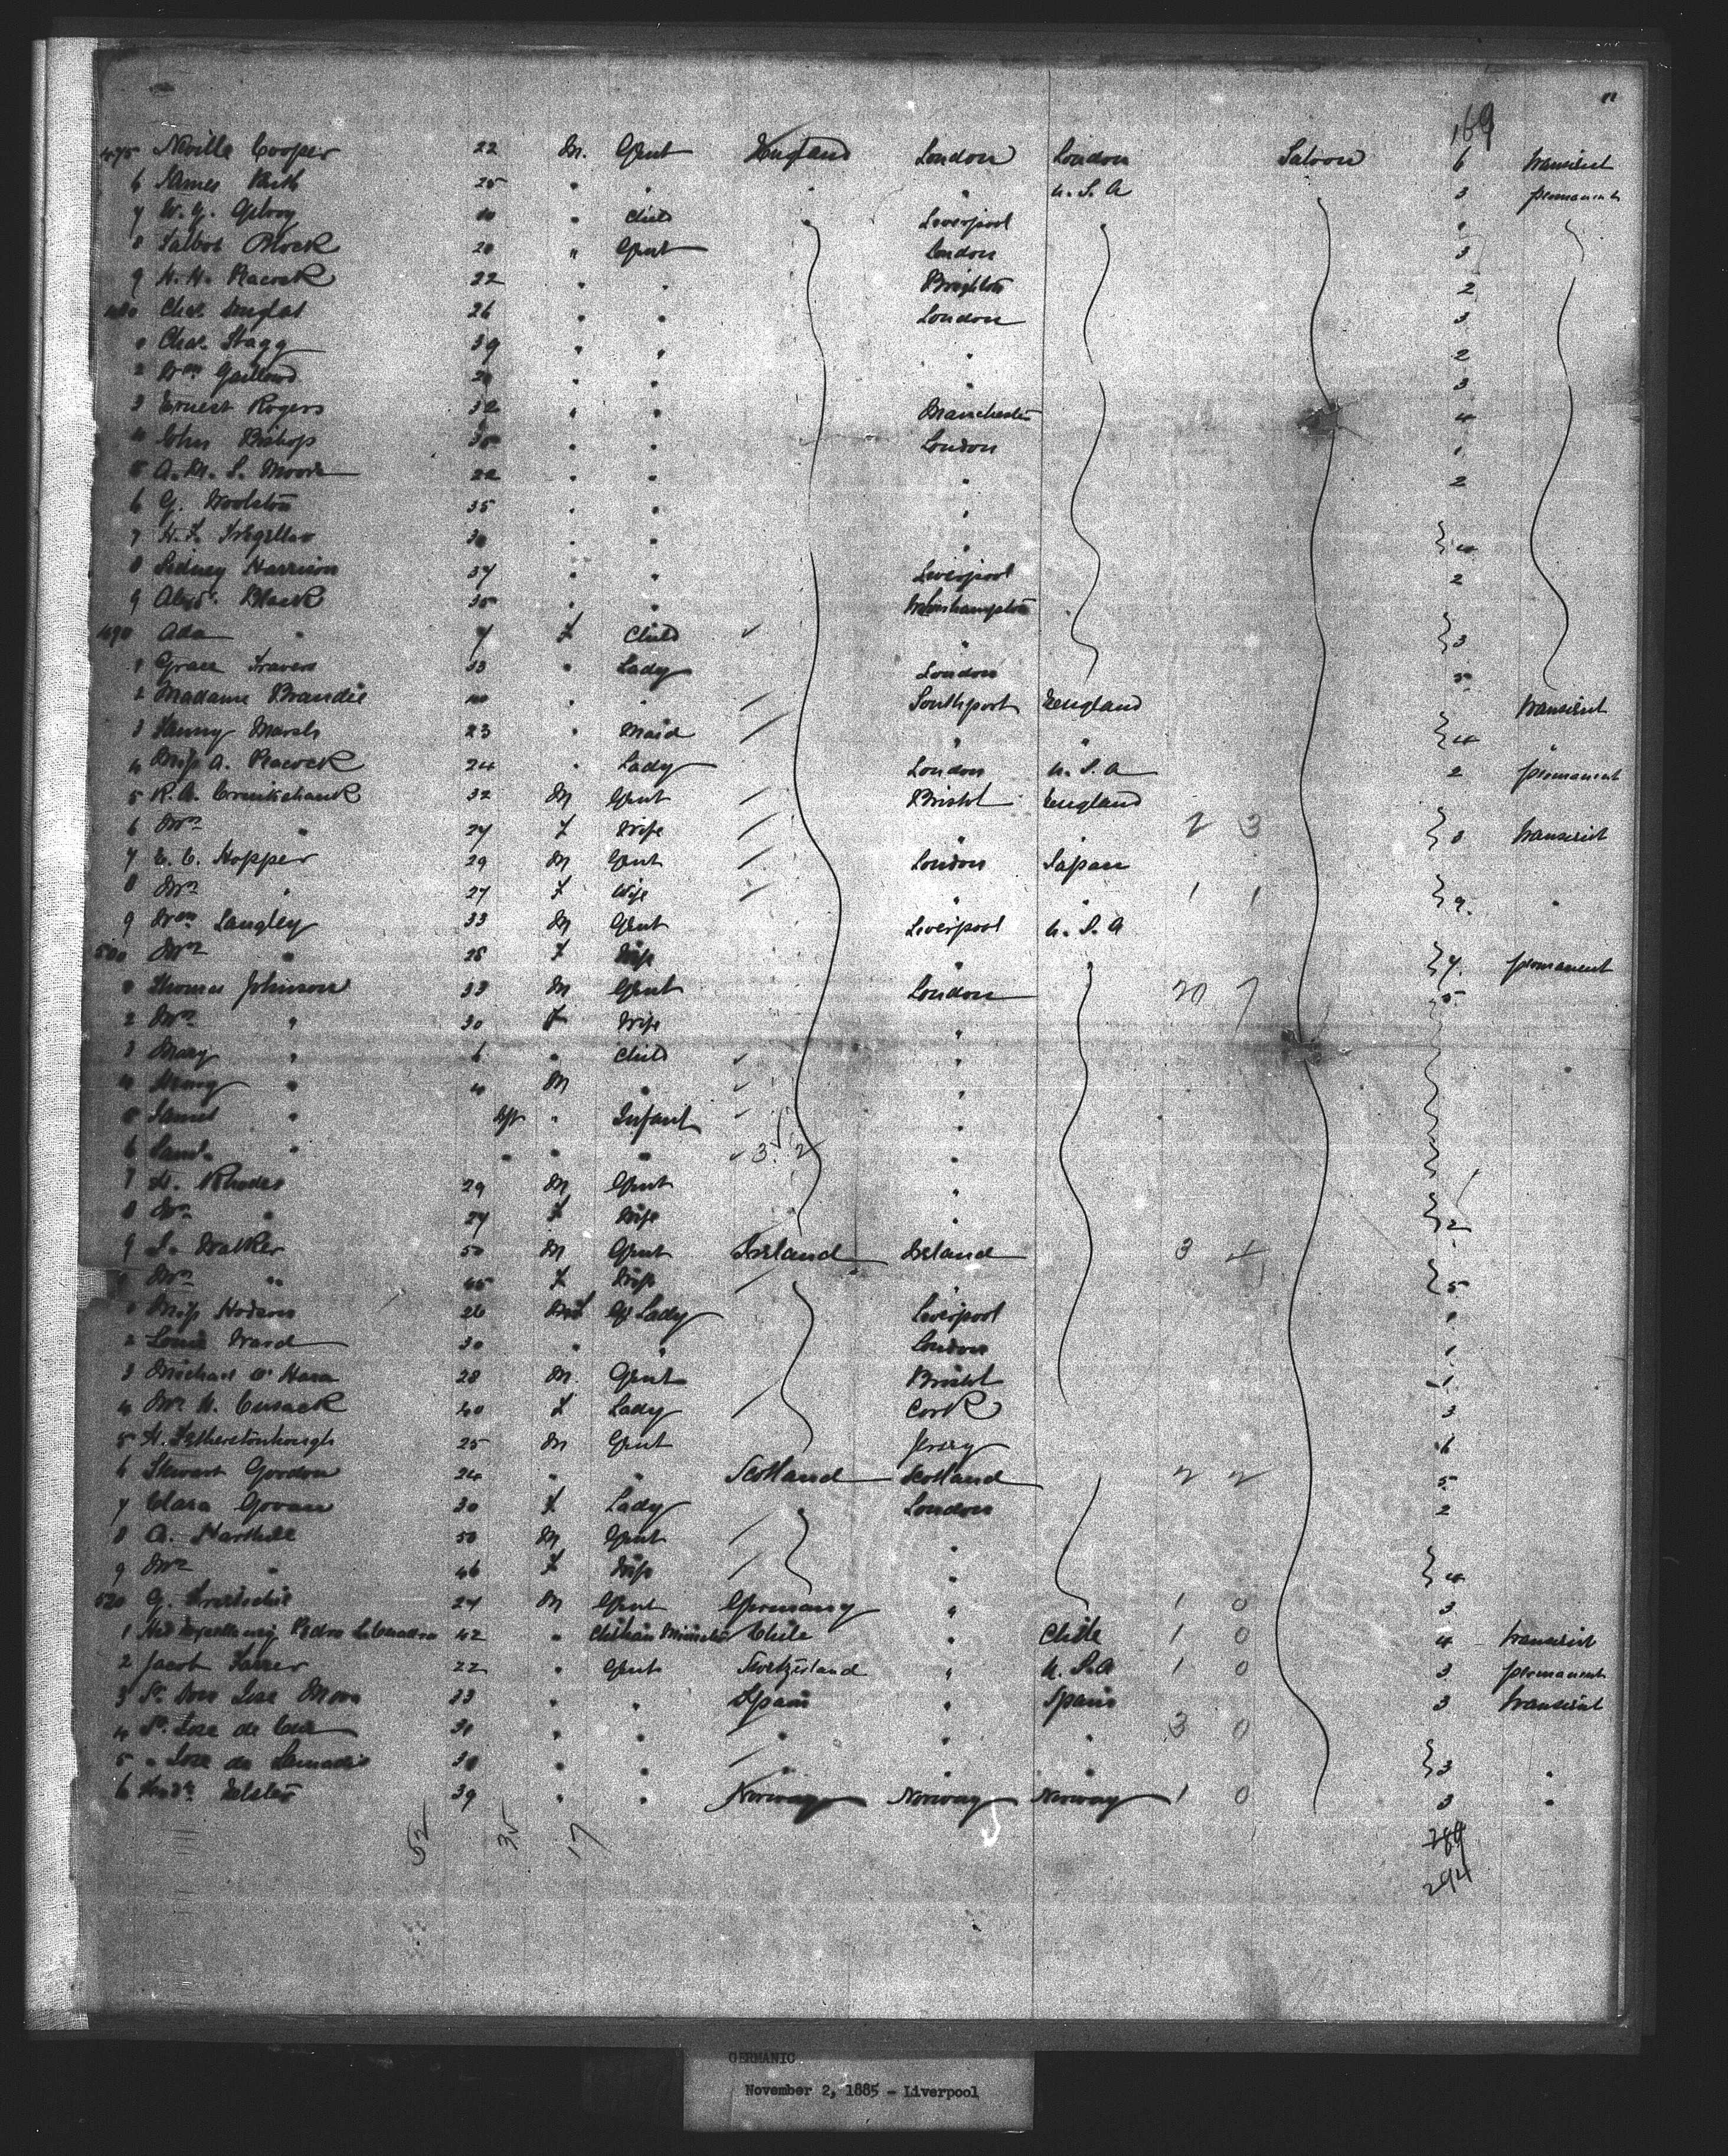 169
475 Neville Cooper 22 M. Gent England London London Saloon 6 transient
6 James 25 " " " " U.S.A 3 permanent
7 W. G. " Child Liverpool
8 Talbot 20 " Gent London 3
9 H. H. Peacock 22 " " Brighton 2
480 Chas. Douglas 26 " " London 3
Chas. Stagg 39 " " " 2
2 Wm " " " 3
3 Ernest Rogers 32 " " Manchester 4
4 John Bishop " " London 1
5 A. M. S. Moore 22 " " " 2
6 G. Woolston 35 " " "
7 30 " " " 4
8 Sidney Harrison 37 " " Liverpool 2
9 Alexr. Black 35 " "
490 Ada " 7 F Child " 3
1 Grace Travers 33 " Lady London 5
2 Madame " " Southport England transient
3 Fanny Marsh 23 " Maid " " 4 "
4 Miss A. Peacock 24 " Lady London U.S.A 2 permanent
5 R. A. Cruikshank 32 M Gent Bristol England
6 Mrs " 27 F Wife " " 2 3 8 transient
7 C. C. Hopper 29 M Gent London Japan
8 Mrs " 27 F Wife " " 1 1 9 "
9 Wm Langley 33 M Gent Liverpool U.S.A
500 Mrs " 28 F Wife " 7 permanent
Thomas Johnson 33 M Gent London 20 7 5
2 Mrs " 30 F Wife "
3 Mary " 6 " Child "
4 Henry " 4 M " "
5 James " " Infant "
6 Saml. " " " " 35 2 "
7 Rhodes 29 M Gent "
8 Mrs " 27 F Wife " 2
9 Walker 50 M Gent Ireland Ireland 3 4
Mrs " 45 F Wife " 5
1 Miss Hodson 26 Lady Liverpool 1
2 Ward 30 " " London 1
3 Michael O'Hara 28 M. Gent Bristol 1
4 Cusack 40 F Lady Cork 3
5 H. Fetherstonhaugh 25 M Gent Jersey 6
6 Stewart Gordon 24 " " Scotland Scotland 2 2 5
7 Clara Govan 30 F Lady London 2
8 A. Harthill 50 M Gent "
9 Mrs " 46 F Wife " 4
520 G. 24 M Gent Germany " 1 0 3
1 His Excellency Pedro 42 " Chilian Minister Chile " Chile 1 0 4 transient
2 Jacob 22 " Gent Switzerland " U.S.A 1 0 3 permanent
3 Sr. Don Jose Mora 33 " " Spain " Spain 3 transient
4 Sr. Jose de 31 " " " " " 3 0
5 " Jose de 30 " " " " " 3 "
6 39 " " Norway Norway Norway 1 0 3 "
52 35 17 789
294
GERMANIC
November 2, 1885 - Liverpool